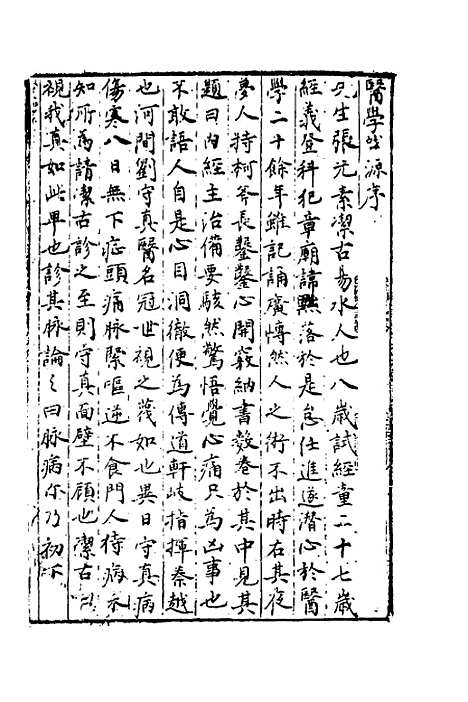 醫學啓源序
先生張元素潔古易水人也八歲試經童二十七歲
經義登科犯章廟諱黜落於是怠仕進遂潛心於醫
學二十餘年雖記誦廣博然人之術不出時右其夜
夢人持柯斧長鑿鑿心開竅納書數卷於其中見其
題曰內經主治備要駭然驚悟覺心痛只為凶事也
不敢語人自是心目洞徹便為傳道軒岐指揮秦越
也河間劉守真醫名冠世視之蔑如也異日守真病
傷寒八日無下症頭痛脉緊嘔逆不食門人侍病未
知所為請潔古診之至則守真面壁不顧也潔古曰
視我真如此卑也診其脉論之曰脉病尓乃初亦